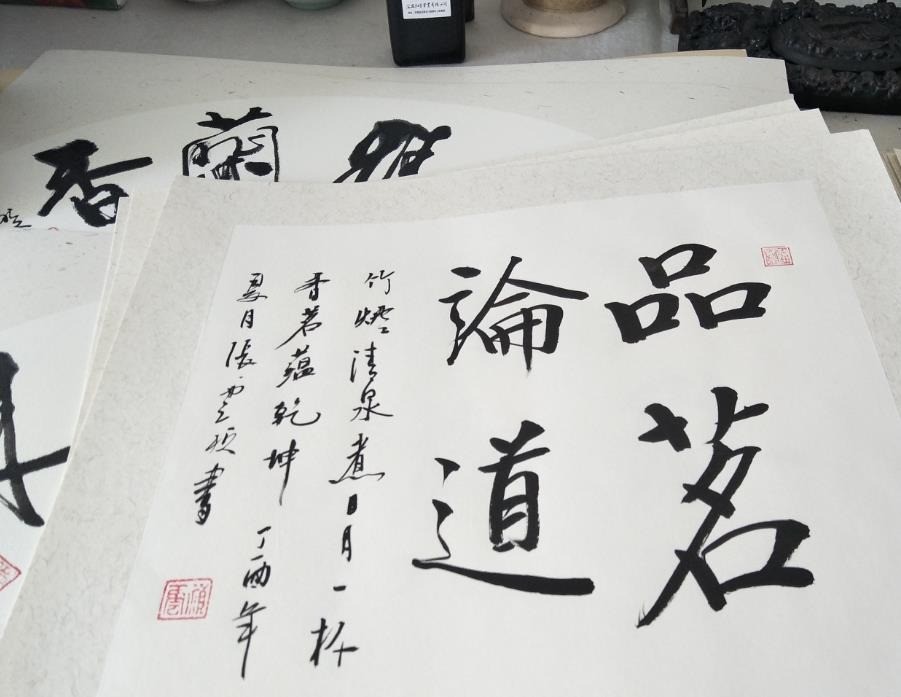 品茗
論道
竹煙清泉煮日月一杯
香茗蕴乾坤 丁酉年
夏月張雲硕書
蘭
香